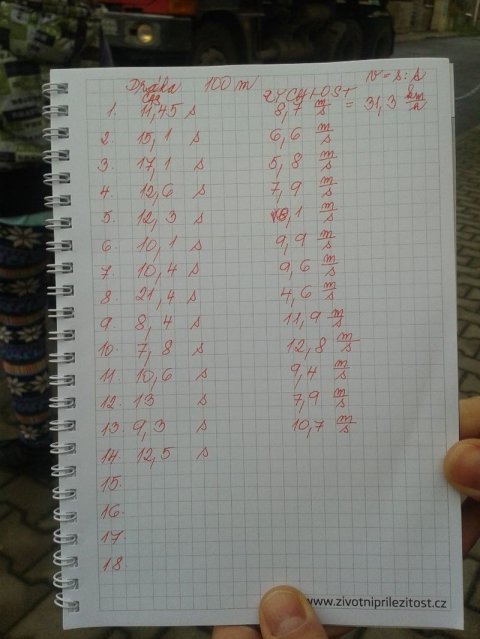 Dráha 100 m v = s : s
ČAS RYCHLOST
1. 11,45 s 8,7 m/s = 31,3 km/h
2. 15,1 s 6,6 m/s
3. 17,1 s 5,8 m/s
4. 12,6 s 7,9 m/s
5. 12,3 s 8,1 m/s
6. 10,1 s 9,9 m/s
7. 10,4 s 9,6 m/s
8. 21,4 s 4,6 m/s
9. 8,4 s 11,9 m/s
10. 7,8 s 12,8 m/s
11. 10,6 s 9,4 m/s
12. 13 s 7,9 m/s
13. 9,3 s 10,7 m/s
14. 12,5 s
15.
16.
17.
18
www.zivotniprilezitost.cz